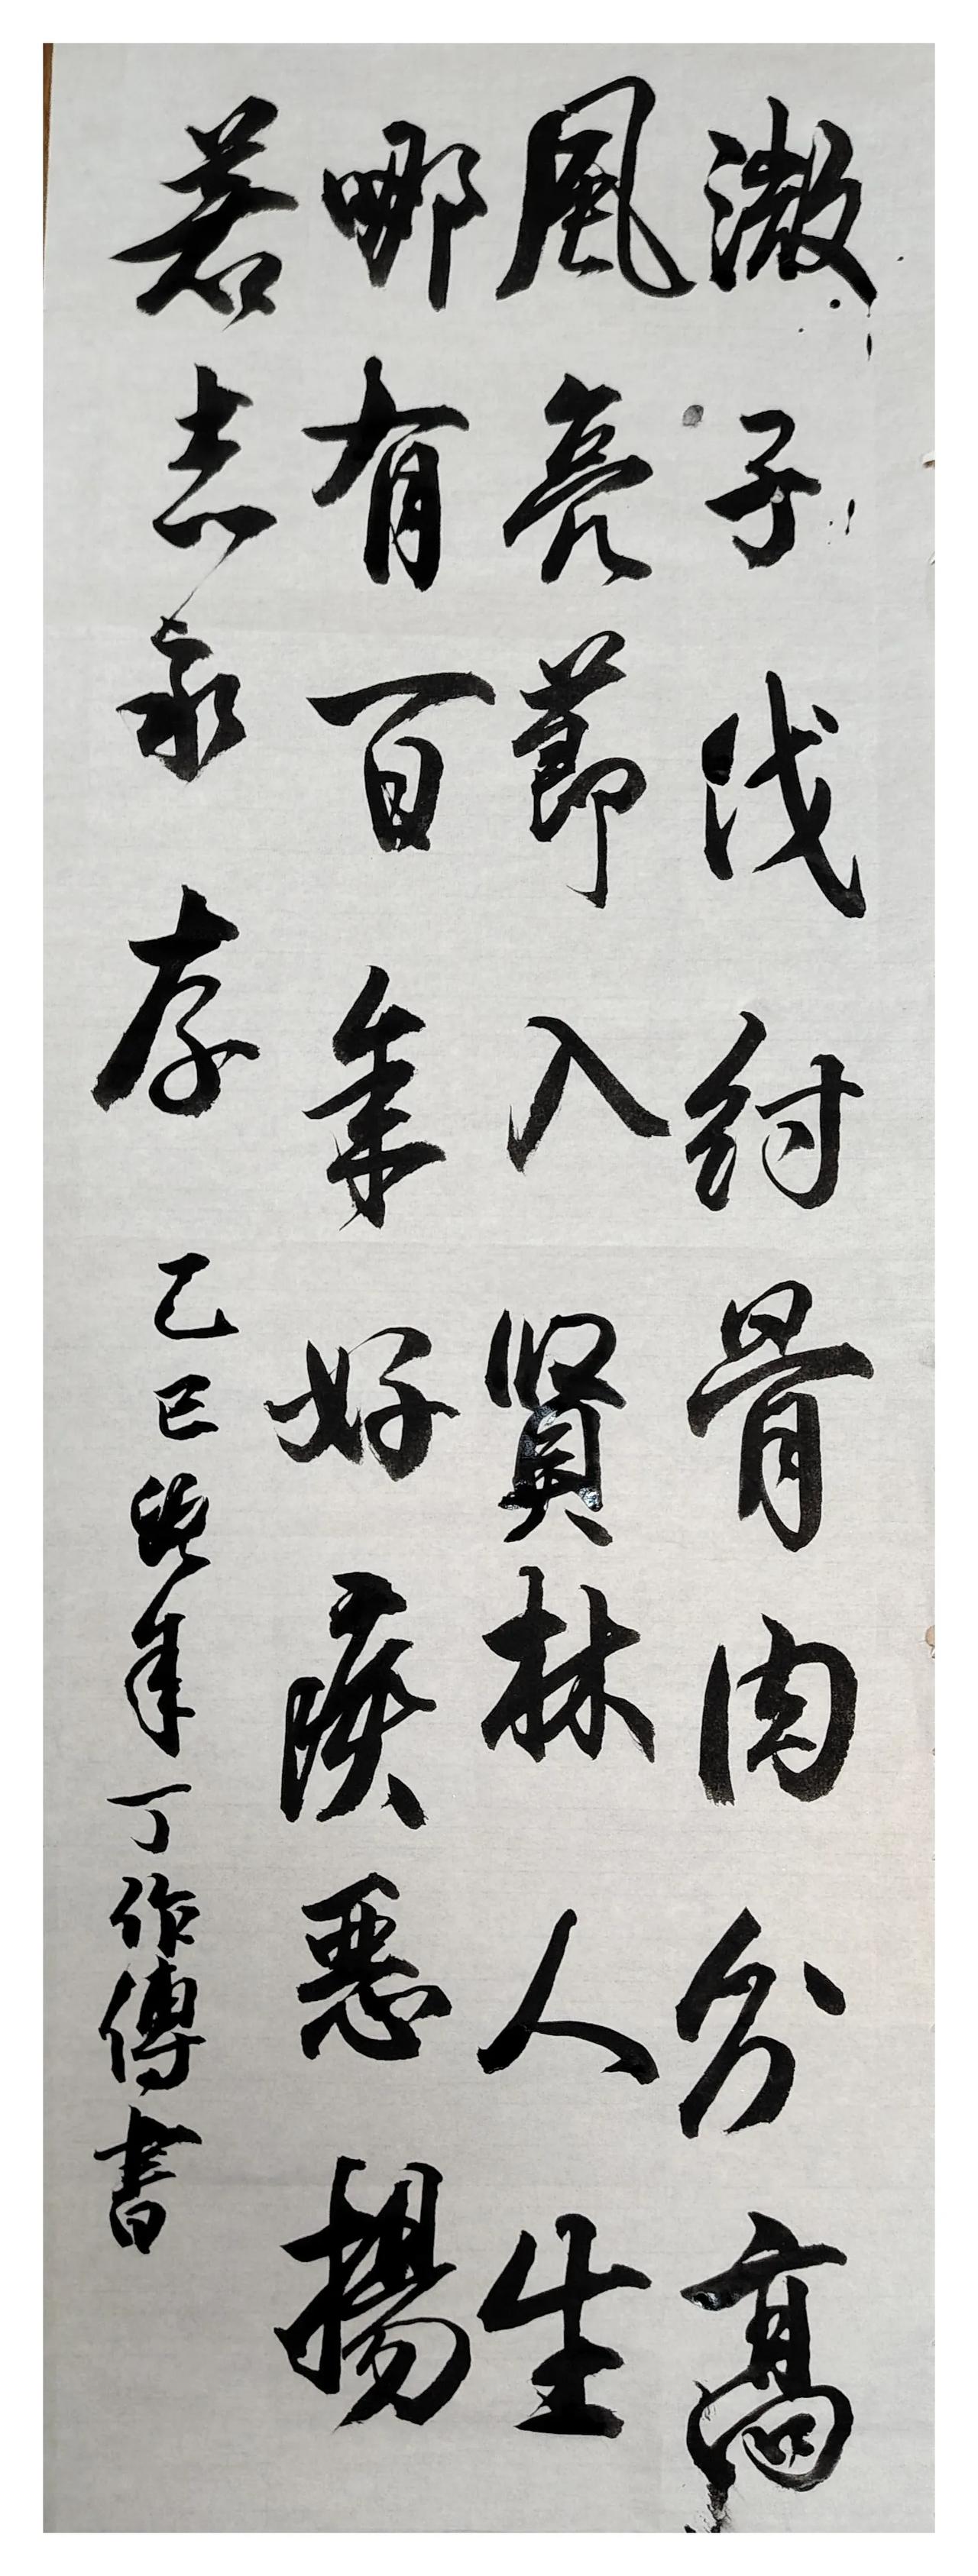 微子伐紂骨肉分高
風亮節入賢林人生
哪有百年好惡揚
善志永存 乙巳蛇年丁作傳書